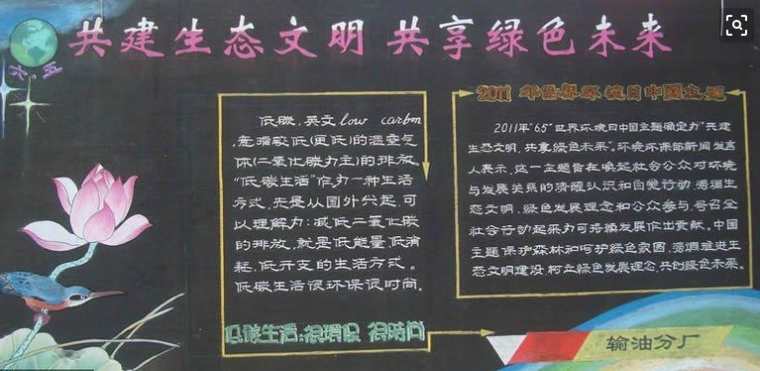 共建生态文明 共享绿色未来
六·五
低碳,英文low carbon,
意指较低(更低)的温室气
体(二氧化碳为主)的排放。
"低碳生活"作为一种生活
方式,先是从国外兴起,可
以理解为:减低二氧化碳
的排放,就是低能量低消
耗,低开支的生活方式。
低碳生活很环保很时尚。
低碳生活:很環保 很時尚
2011年世界环境日中国主题
2011年"65"世界环境日中国主题确定为"共建
生态文明,共享绿色未来"。环境环保部新闻发言
人表示,这一主题旨在唤起社会公众对环境
与发展关系的清醒认识和自觉行动,
生态文明,绿色发展理念和公众参与,号召全
社会行动起来为可持续发展作出贡献。中国
主题保护森林和呵护绿色家园,推进生
态文明建设,树立绿色发展理念,共创绿色未来。
输油分厂